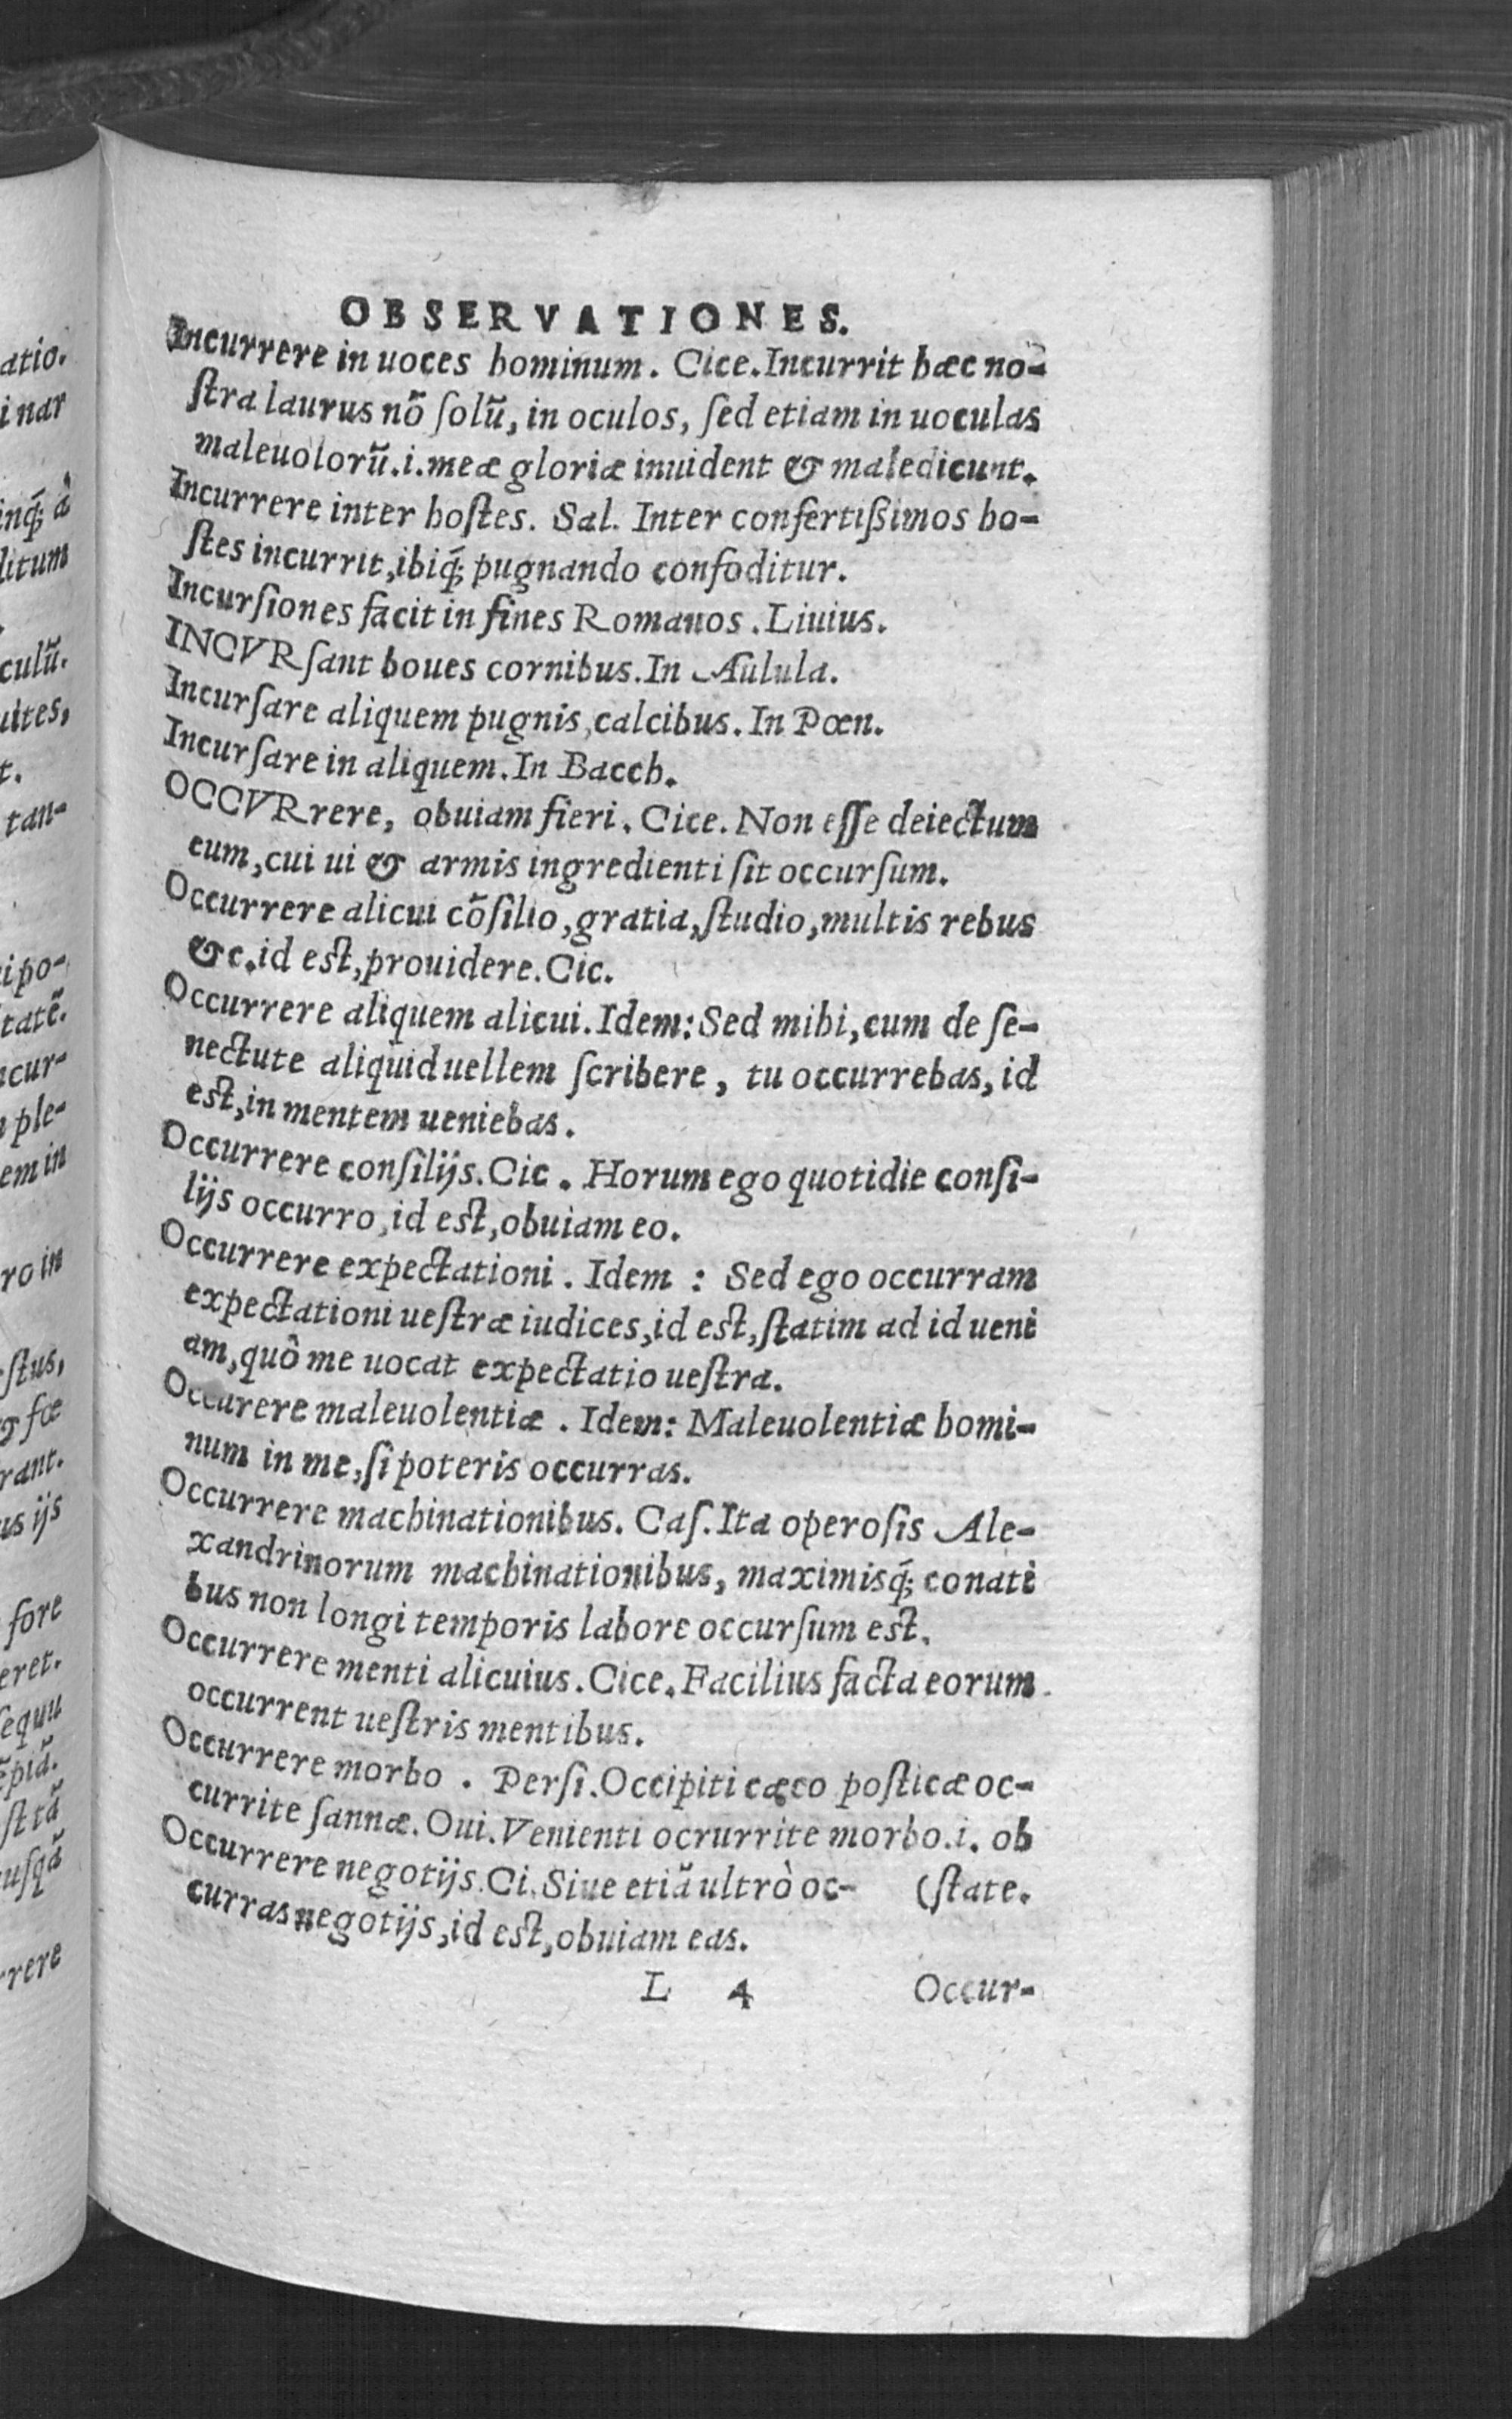 OBSERVATIONES.
Incurrere in uoces hominum. Cice. Incurrit hæc no-
ſtra laurus nō ſolū, in oculos, ſed etiam in uoculas
maleuolorū. i. meæ gloriæ inuident & maledicunt.
Incurrere inter hoſtes. Sal. Inter confertißimos ho-
ſtes incurrit, ibiq́; pugnando confoditur.
Incurſiones facit in fines Romanos. Liuius.
INCVRſant boues cornibus. In Aulula.
Incurſare aliquem pugnis, calcibus. In Pœn.
Incurſare in aliquem. In Bacch.
OCCVRrere, obuiam fieri. Cice. Non eſſe deiectum
eum, cui ui & armis ingredienti ſit occurſum.
Occurrere alicui cōſilio, gratia, ſtudio, multis rebus
&c. id eſt, prouidere. Cic.
Occurrere aliquem alicui. Idem: Sed mihi, cum de ſe-
nectute aliquid uellem ſcribere, tu occurrebas, id
eſt, in mentem ueniebas.
Occurrere conſilijs. Cic. Horum ego quotidie conſi-
lijs occurro, id eſt, obuiam eo.
Occurrere expectationi. Idem: Sed ego occurram
expectationi ueſtræ iudices, id eſt, ſtatim ad id ueni
am, quô me uocat expectatio ueſtra.
Occurere maleuolentiæ. Idem: Maleuolentiæ homi-
num in me, ſi poteris occurras.
Occurrere machinationibus. Cæſ. Ita operoſis Ale-
xandrinorum machinationibus, maximisq́; conati
bus non longi temporis labore occurſum eſt.
Occurrere menti alicuius. Cice. Facilius facta eorum
occurrent ueſtris mentibus.
Occurrere morbo. Perſi. Occipiti cæco poſticæ oc-
currite ſannæ. Oui. Venienti ocrurrite morbo. i. ob
Occurrere negotijs. Ci. Siue etiā ultrò oc- (ſtate.
curras negotijs, id eſt, obuiam eas.
L 4 Occur-
atio.
i nar
inq́; à
ditum
culū.
uites,
t.
tan-
ipo-
tatē.
ncur-
ple-
em in
ro in
ſtus,
& fœ
rant.
us ijs
fore
eret.
ſequu
ēpiā.
ſt tā
uſqā
rrere